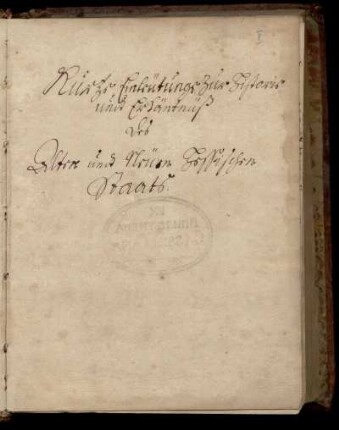 I
Kurtze Einleütung Zur Historie
und Erkäntnüß
des
Alten und Neüen Heßischen
Staats.